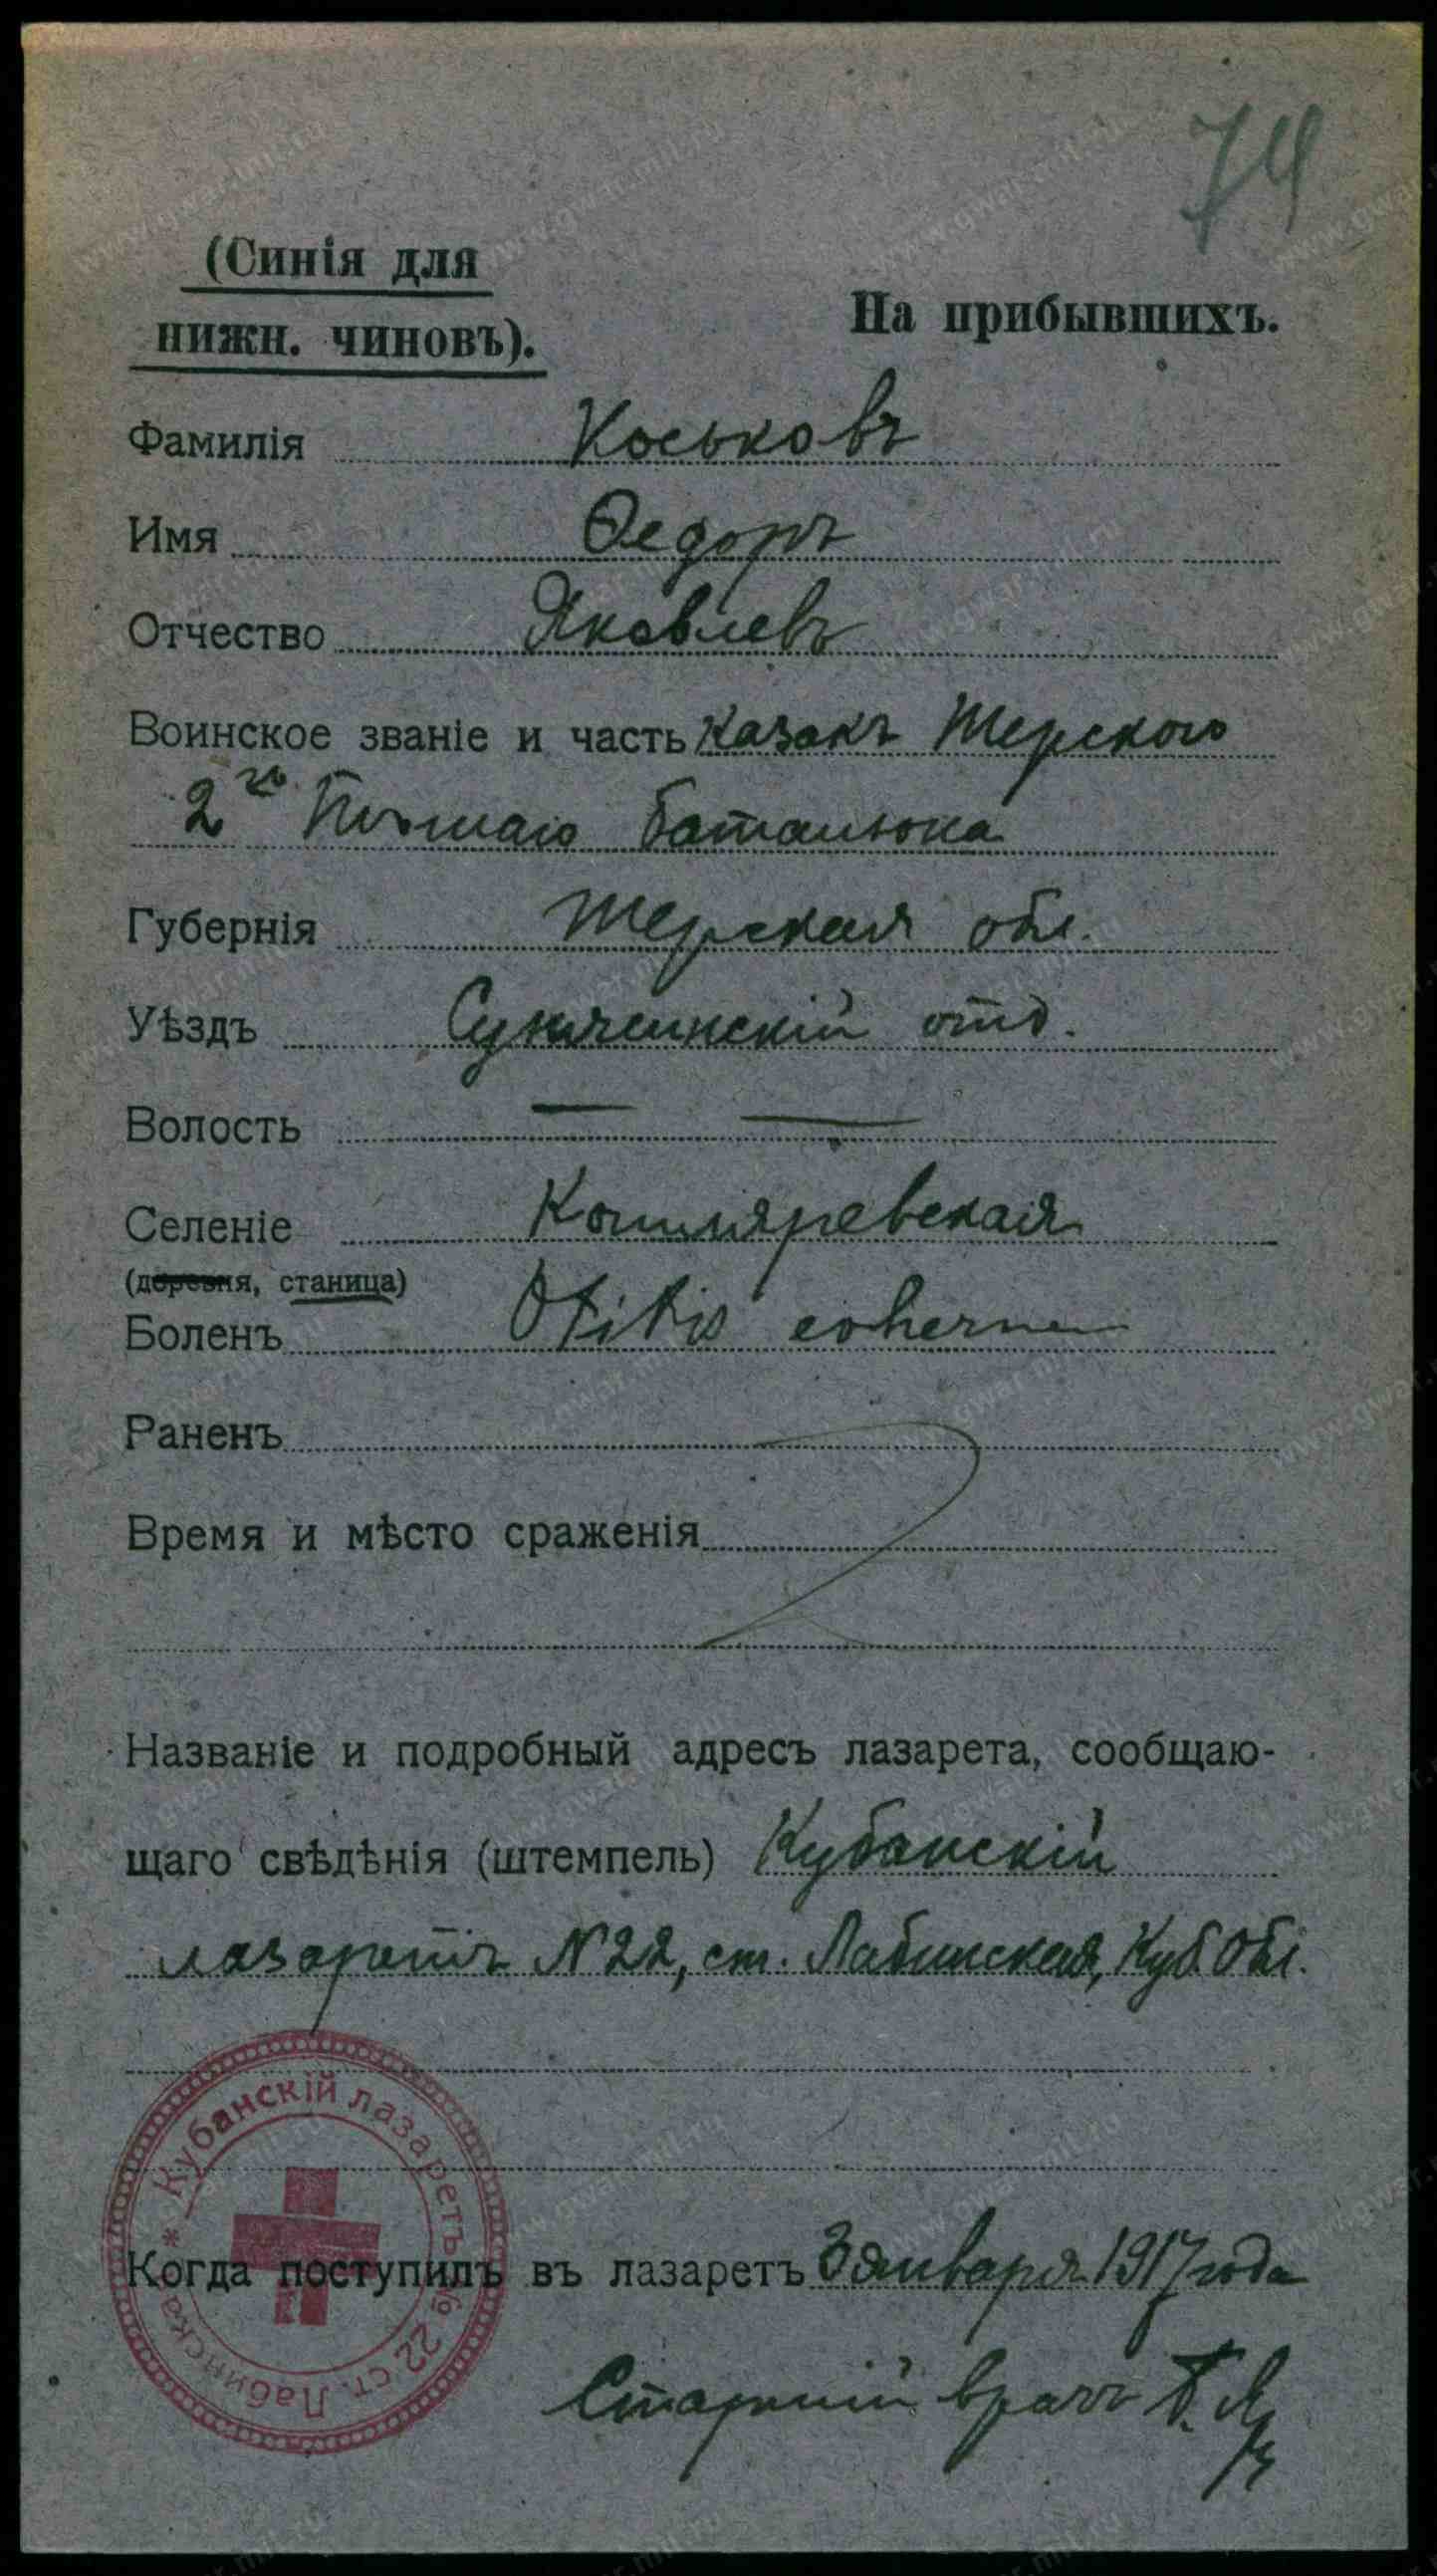 74
(Синія для
нижн. чиновъ).
На прибывшихъ.
Фамилія Коськовъ
Имя Ѳедоръ
Отчество Яковлевъ
Воинское званіе и часть казакъ Терского
2го Пѣшаго баталіона
Губернія Терская обл.
Уѣздъ Сунженскій отд.
Волость — —
Селеніе Котляревская
(деревня, станица)
Боленъ Otitis externa
Раненъ
Время и мѣсто сраженія
Названіе и подробный адресъ лазарета, сообщаю-
щаго свѣдѣнія (штемпель) Кубанскій
лазаретъ № 22, ст. Лабинская, Куб. Обл.
Кубанскій лазаретъ № 22 ст. Лабинска *
Когда поступилъ въ лазаретъ 3 января 1917 года
Старшій врачъ